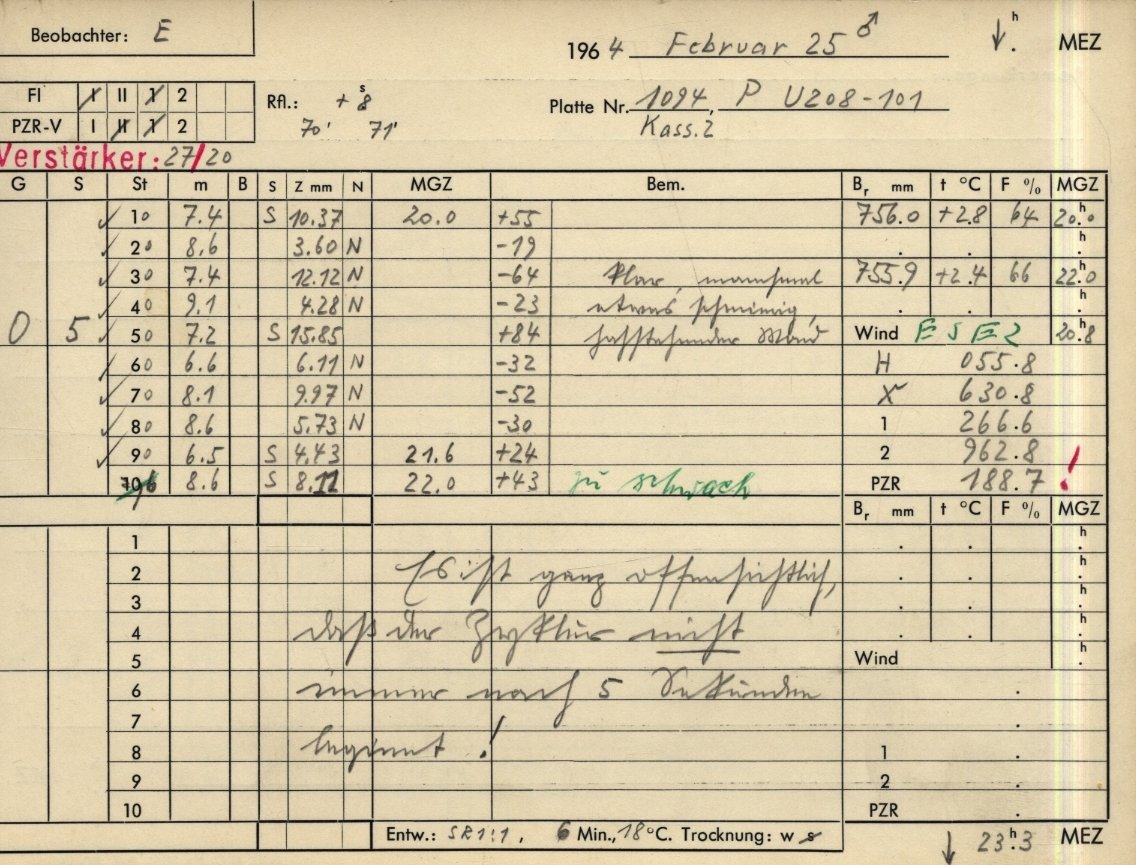 Beobachter: E
1964 Februar 25 ♂
↓ h . MEZ
FI I II 1 2
Rfl.: + 8 s
Platte Nr. 1094, P U208-101
PZR-V I II 1 2
70' 71'
Kass. 2
Verstärker: 27/20
G S St m B S Z mm N MGZ Bem. Br mm t °C F % MGZ
✓ 10 7.4 S 10.37 20.0 +55 756.0 +2.8 64 20h.0
✓ 20 8.6 3.60 N -19 . . h.
✓ 30 7.4 12.12 N -64 klar, manchmal 755.9 +2.4 66 22h.0
✓ 40 9.1 4.28 N -23 etwas schmierig, . . h.
0 5 ✓ 50 7.2 S 15.85 +84 hochstehender Mond Wind ESE2 20h.8
✓ 60 6.6 6.11 N -32 H 055.8
✓ 70 8.1 9.97 N -52 X 630.8
✓ 80 8.6 5.73 N -30 1 266.6
✓ 90 6.5 S 4.43 21.6 +24 2 962.8
8.6 S 8.11 22.0 +43 zu schwach PZR 188.7 !
Br mm t °C F % MGZ
1 . . h.
2 Es ist ganz offensichtlich, . . h.
3 . . h.
4 daß der Zyklus nicht . . h.
5 Wind h.
6 immer nach 5 Sekunden .
7 .
8 beginnt! 1 .
9 2 .
10 PZR .
Entw.: SR1:1, 6 Min., 18 °C. Trocknung: w s ↓ 23h.3 MEZ